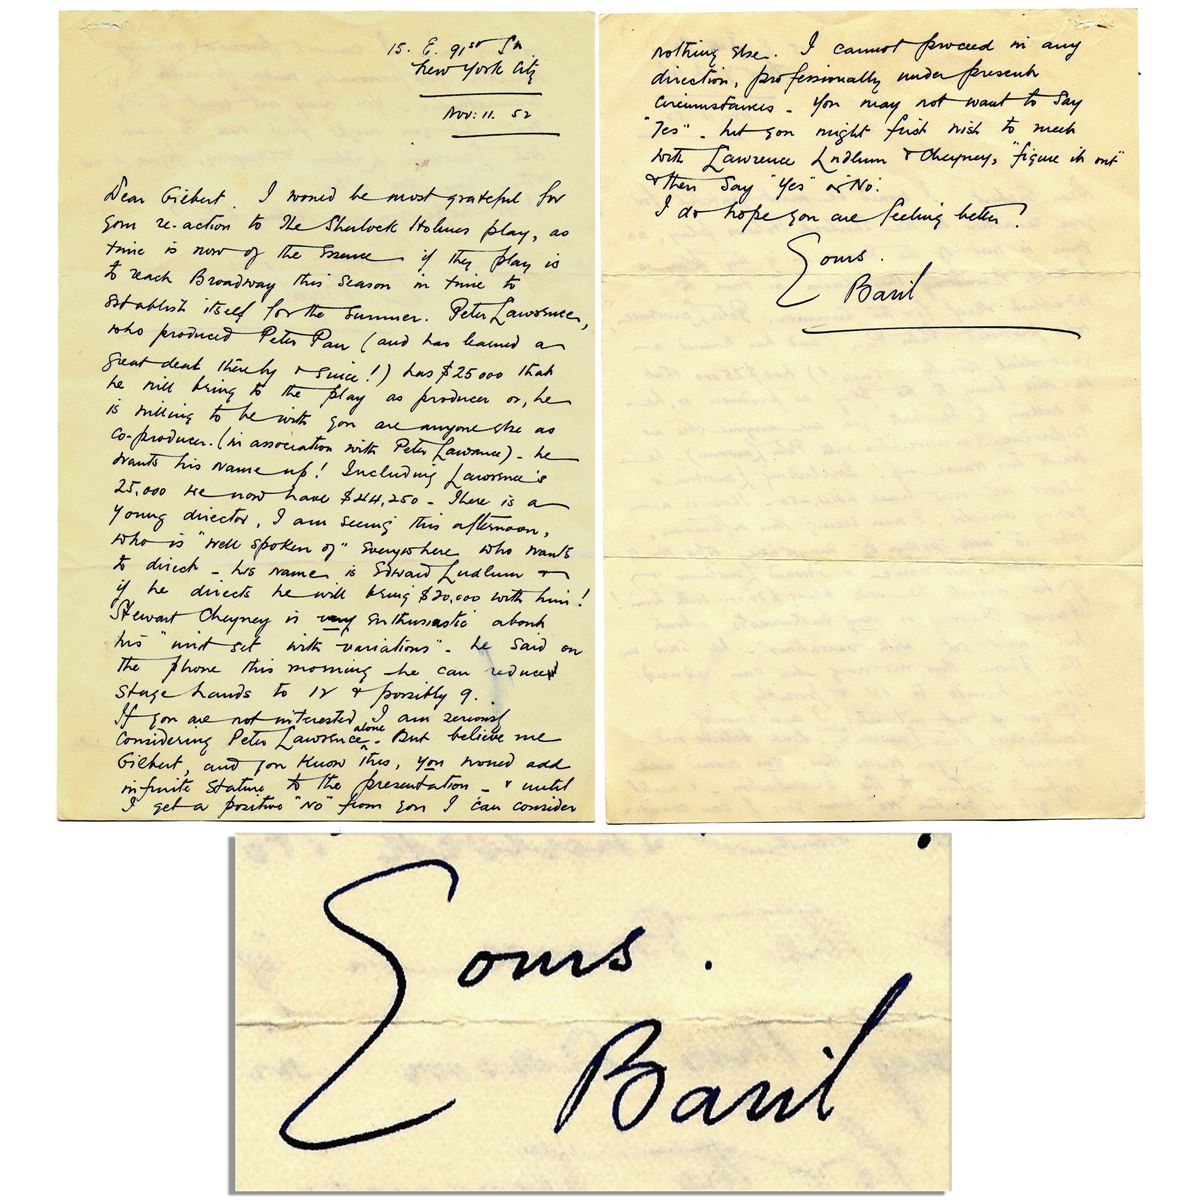 15. E. 91st St
New York City
Nov: 11. 52
Dear Gilbert. I would be most grateful for
your re-action to the Sherlock Holmes play, as
time is now of the essence if they play is
to reach Broadway this season in time to
establish itself for the summer. Peter Lawrence,
who produced Peter Pan (and has learned a
great deal thereby & since!) has $25000 that
he will bring to the play as producer or, he
is willing to be with you are anyone else as
co-producer. (in association with Peter Lawrence) - he
wants his name up! Including Lawrence's
25,000 we now have $44,250 - There is a
young director, I am seeing this afternoon,
who is "well spoken of" everywhere who wants
to direct - his name is Edward Ludlum &
if he directs he will bring $20,000 with him!
Stewart Cheyney is very enthusiastic about
his "unit set with variations" - he said on
the phone this morning he can reduce
stage hands to 12 & possibly 9.
If you are not interested I am seriously
considering Peter Lawrence alone. But believe me
Gilbert, and you know this, you would add
infinite stature to the presentation - & until
I get a positive "No" from you I can consider
nothing else. I cannot proceed in any
direction, professionally under present
circumstances - You may not want to say
"Yes" - but you might first wish to meet
with Lawrence Ludlum & Cheyney, "figure it out"
& then say "Yes" or "No".
I do hope you are feeling better?
Yours.
Basil
Yours.
Basil